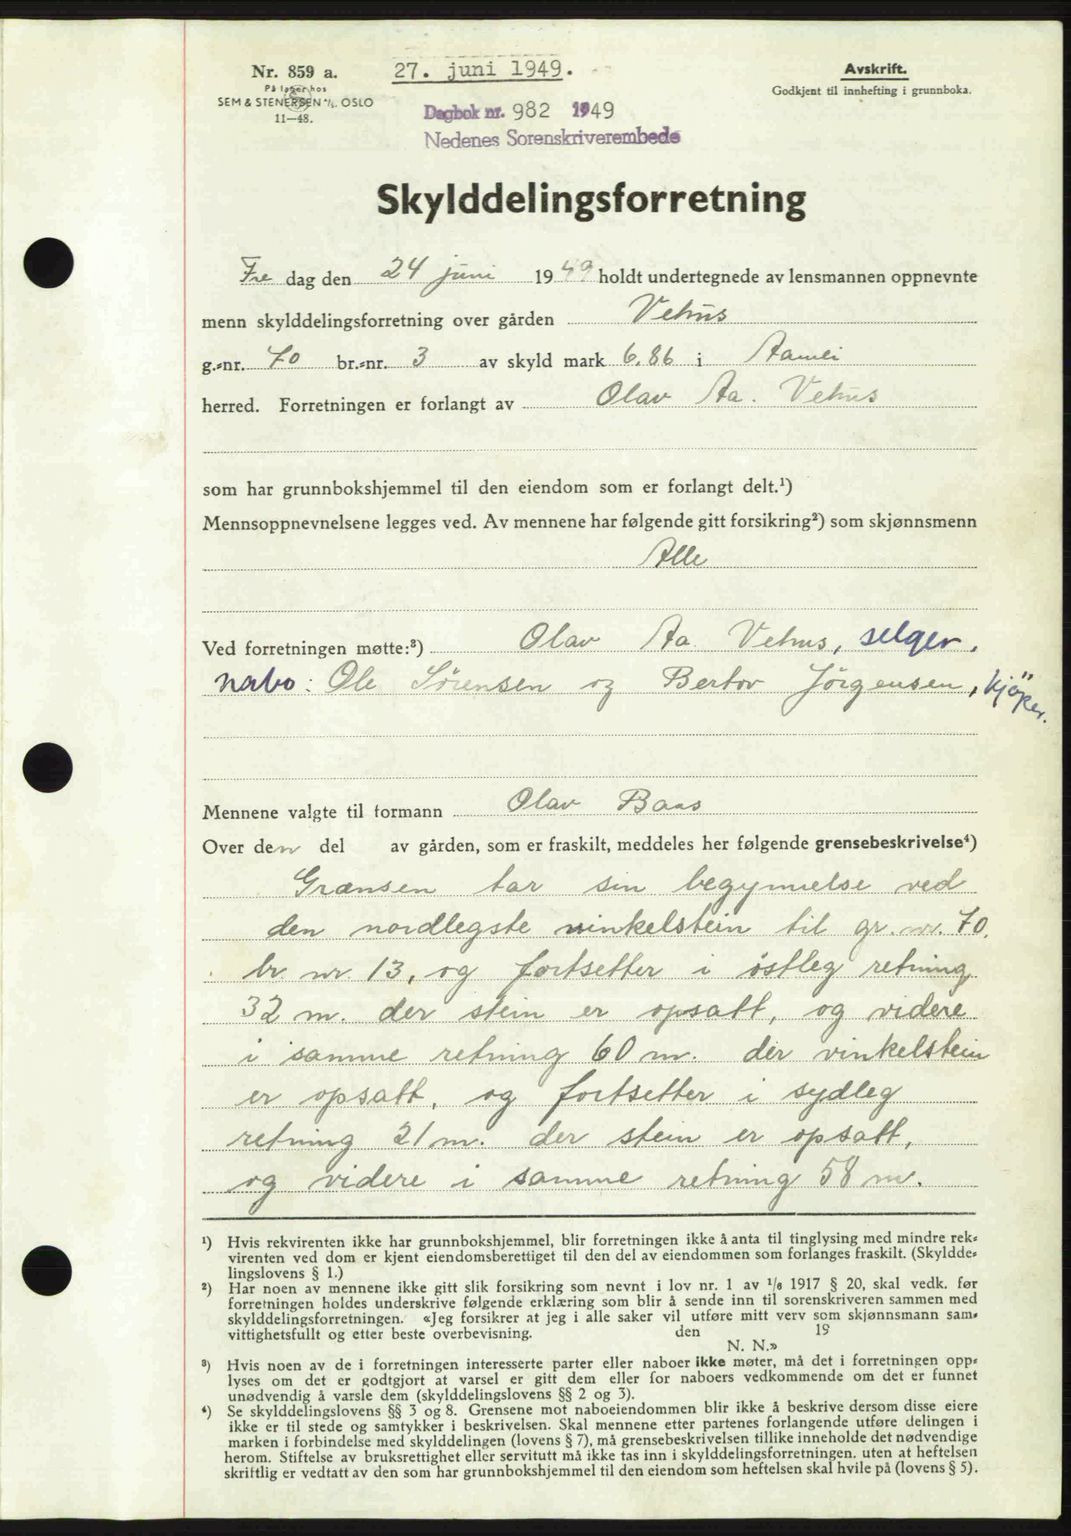 Nr. 859 a.
På lager hos
SEM & STENERSEN A/S. OSLO
11—48.
27. juni 1949.
Dagbok nr. 982 1949
Nedenes Sorenskriverembede
Avskrift.
Godkjent til innhefting i grunnboka.
Skylddelingsforretning
Fre dag den 24 juni 1949 holdt undertegnede av lensmannen oppnevnte
menn skylddelingsforretning over gården Vehus
g.-nr. 70 br.-nr. 3 av skyld mark 6.86 i Aamli
herred. Forretningen er forlangt av Olav Aa. Vehus
som har grunnbokshjemmel til den eiendom som er forlangt delt.¹)
Mennsoppnevnelsene legges ved. Av mennene har følgende gitt forsikring²) som skjønnsmenn
Alle
Ved forretningen møtte:³) Olav Aa. Vehus, selger,
nabo: Ole Sörensen og Bertov Jörgensen, kjöper.
Mennene valgte til formann Olav Baas
Over den del av gården, som er fraskilt, meddeles her følgende grensebeskrivelse⁴)
Grænsen tar sin begynnelse ved
den nordlegste vinkelstein til gr. nr. 70.
br. nr. 13, og fortsetter i östleg retning
32 m. der stein er opsatt, og videre
i samme retning 60 m. der vinkelstein
er opsatt, og fortsetter i sydleg
retning 21 m. der stein er opsatt,
og videre i samme retning 58 m.
¹) Hvis rekvirenten ikke har grunnbokshjemmel, blir forretningen ikke å anta til tinglysing med mindre rek-
virenten ved dom er kjent eiendomsberettiget til den del av eiendommen som forlanges fraskilt. (Skyldde-
lingslovens § 1.)
²) Har noen av mennene ikke gitt slik forsikring som nevnt i lov nr. 1 av ¹/₆ 1917 § 20, skal vedk. før
forretningen holdes underskrive følgende erklæring som blir å sende inn til sorenskriveren sammen med
skylddelingsforretningen. «Jeg forsikrer at jeg i alle saker vil utføre mitt verv som skjønnsmann sam-
vittighetsfullt og etter beste overbevisning. den 19
N. N.»
³) Hvis noen av de i forretningen interesserte parter eller naboer ikke møter, må det i forretningen opp-
lyses om det er godtgjort at varsel er gitt dem eller for naboers vedkommende om det er funnet
unødvendig å varsle dem (skylddelingslovens §§ 2 og 3).
⁴) Se skylddelingslovens §§ 3 og 8. Grensene mot naboeiendommen blir ikke å beskrive dersom disse eiere
ikke er til stede og samtykker i beskrivelsen. Skal mennene etter partenes forlangende utføre delingen i
marken i forbindelse med skylddelingen (lovens § 7), må grensebeskrivelsen tillike inneholde det nødvendige
herom. Stiftelse av bruksrettighet eller servitutt må ikke tas inn i skylddelingsforretningen, uten at heftelsen
skriftlig er vedtatt av den som har grunnbokshjemmel til den eiendom som heftelsen skal hvile på (lovens § 5).